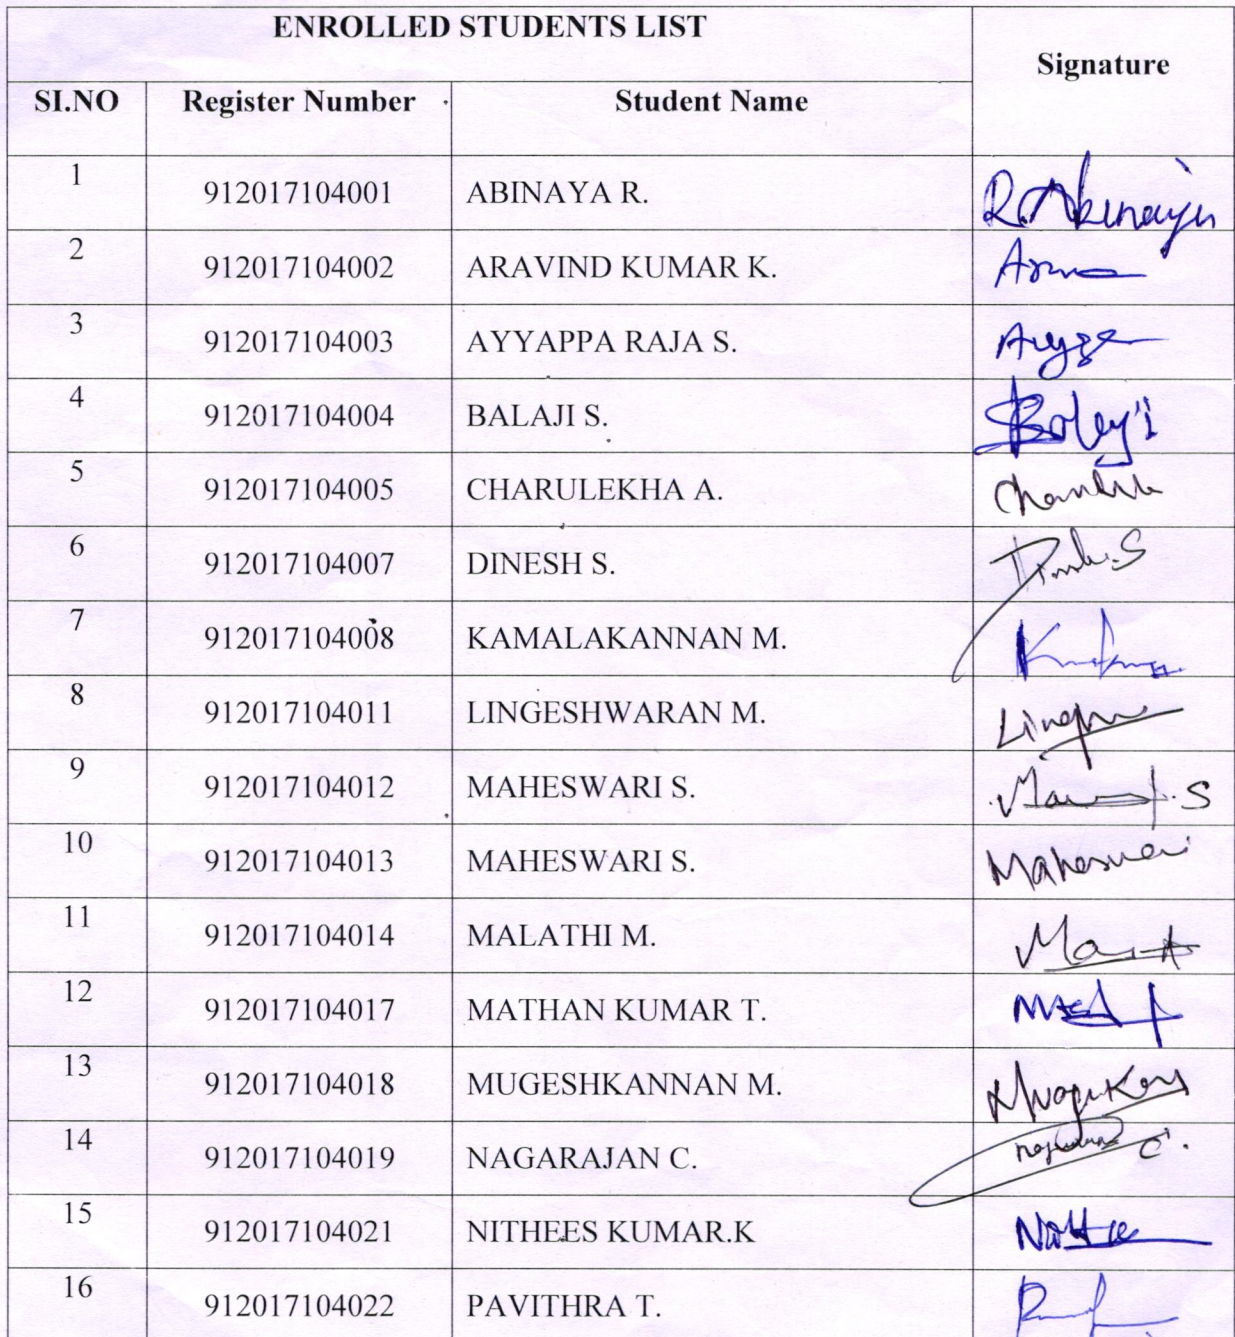 ENROLLED STUDENTS LIST
Signature
SI.NO Register Number Student Name
1 912017104001 ABINAYA R. R.Abinaya
2 912017104002 ARAVIND KUMAR K.
3 912017104003 AYYAPPA RAJA S.
4 912017104004 BALAJI S. Balaji
5 912017104005 CHARULEKHA A.
6 912017104007 DINESH S.
7 912017104008 KAMALAKANNAN M.
8 912017104011 LINGESHWARAN M.
9 912017104012 MAHESWARI S.
10 912017104013 MAHESWARI S. Maheswari
11 912017104014 MALATHI M.
12 912017104017 MATHAN KUMAR T.
13 912017104018 MUGESHKANNAN M.
14 912017104019 NAGARAJAN C.
15 912017104021 NITHEES KUMAR.K
16 912017104022 PAVITHRA T.